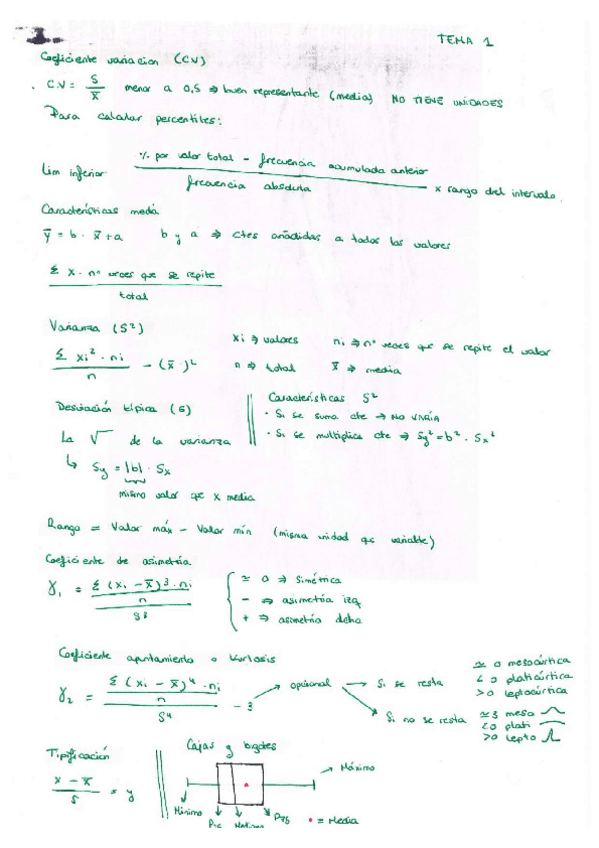 TEMA 1
Coeficiente variación (CV)
C.V = S / x̄ menor a 0,5 ⇒ buen representante (media) NO TIENE UNIDADES
Para calcular percentiles:
Lim inferior (% por valor total - frecuencia acumulada anterior) / (frecuencia absoluta) x rango del intervalo.
Características media
ȳ = b · x̄ + a b y a ⇒ ctes añadidas a todos los valores
Σ x · nº veces que se repite / total
Varianza (S²) xi ⇒ valores ni ⇒ nº veces que se repite el valor
Σ xi² · ni / n - (x̄)² n ⇒ total x̄ ⇒ media
Desviación típica (S)
La √ de la varianza
↳ Sy = |b| · Sx
mismo valor que x media
Características S²
· Si se suma cte ⇒ NO VARÍA
· Si se multiplica cte ⇒ Sy² = b² · Sx²
Rango = Valor máx - Valor mín (misma unidad que variable)
Coeficiente de asimetría
γ₁ = (Σ (xi - x̄)³ · ni / n) / S³
≃ 0 ⇒ Simétrica
- ⇒ asimetría izq
+ ⇒ asimetría dcha
Coeficiente apuntamiento o Kurtosis
γ₂ = (Σ (xi - x̄)⁴ · ni / n) / S⁴ - 3 → opcional
→ Si se resta
≃ 0 mesocúrtica
< 0 platicúrtica
> 0 leptocúrtica
→ Si no se resta
≃ 3 meso
< 0 plati
> 0 lepto
Tipificación
x - x̄ / S = y
Cajas y bigotes
Máximo
Mínimo
P75
• = Media